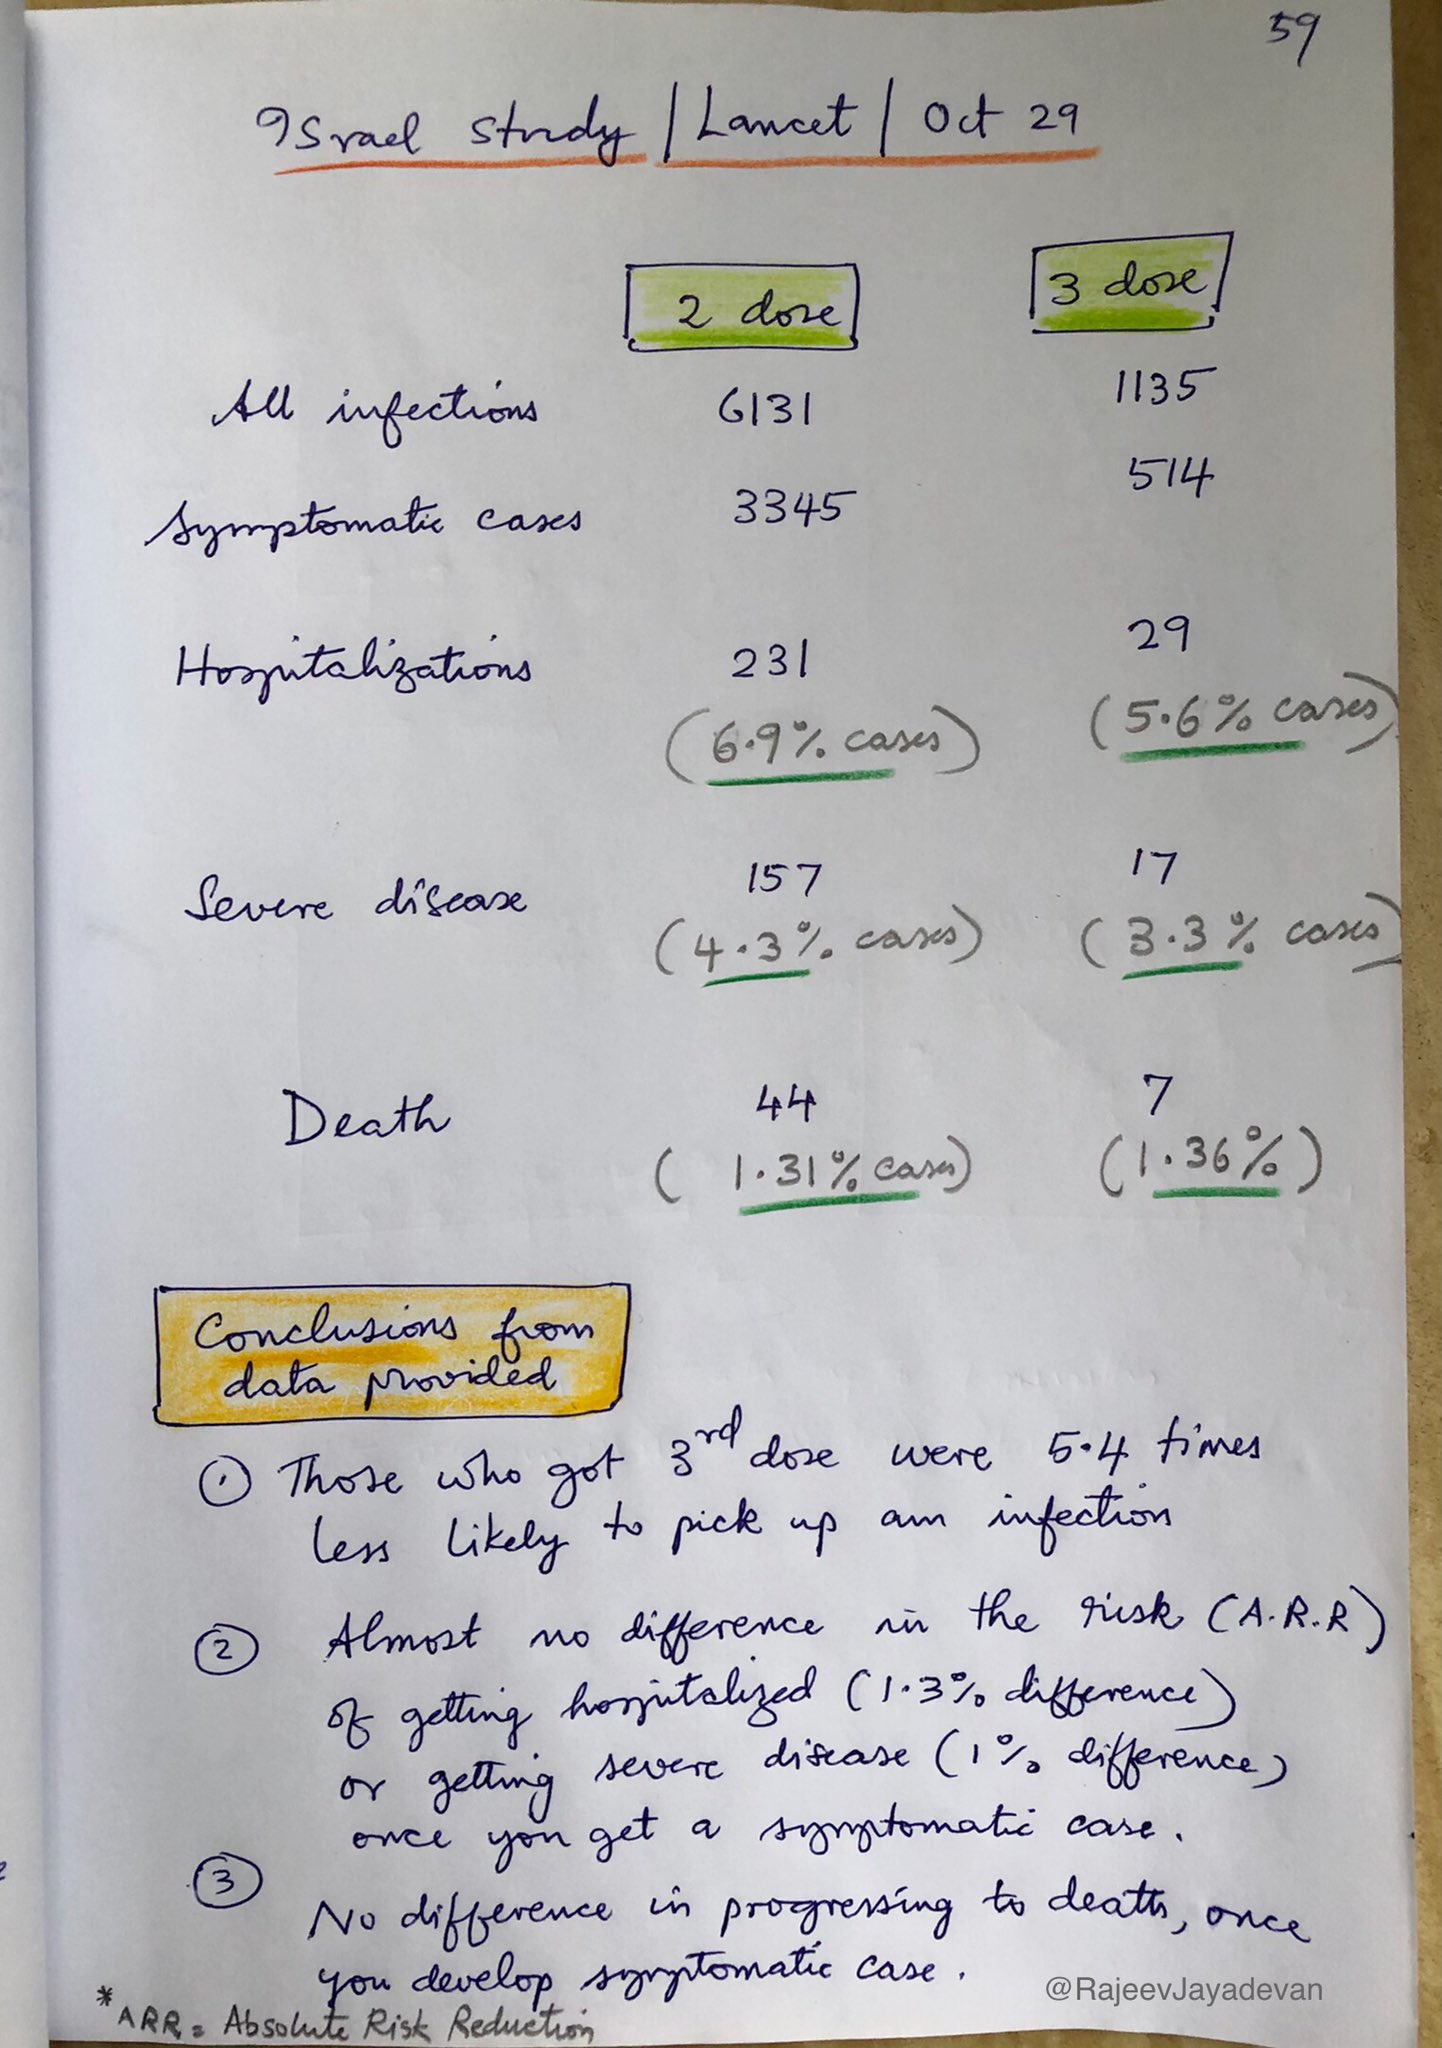 59
Israel study | Lancet | Oct 29
2 dose 3 dose
All infections 6131 1135
Symptomatic cases 3345 514
Hospitalizations 231 29
(6.9% cases) (5.6% cases)
Severe disease 157 17
(4.3% cases) (3.3% cases)
Death 44 7
(1.31% cases) (1.36%)
Conclusions from
data provided
① Those who got 3rd dose were 5.4 times
less likely to pick up an infection
② Almost no difference in the risk (A.R.R)
of getting hospitalized (1.3% difference)
or getting severe disease (1% difference)
once you get a symptomatic case.
③ No difference in progressing to death, once
you develop symptomatic case.
@RajeevJayadevan
* ARR = Absolute Risk Reduction